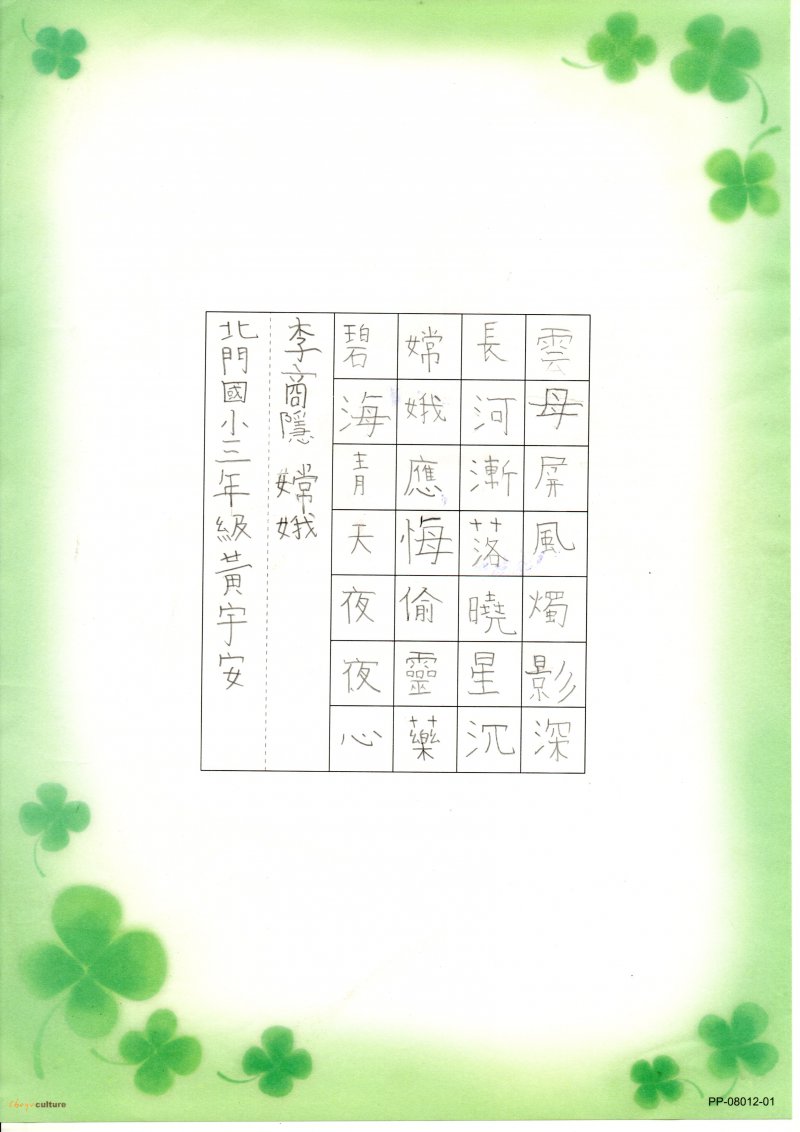 雲母屏風燭影深
長河漸落曉星沉
嫦娥應悔偷靈藥
碧海青天夜夜心
李商隱 嫦娥
北門國小三年級黃宇安
culture
PP-08012-01